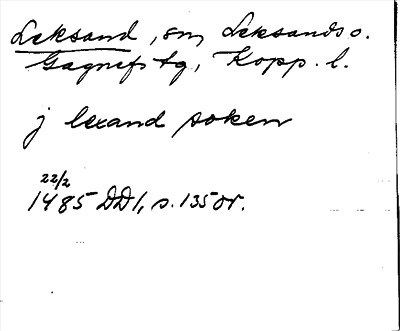 Leksand, sn, Leksands o.
Gagnefs tg, Kopp. l.
j lexand soken
22/2
1485 DD1, s. 135 or.